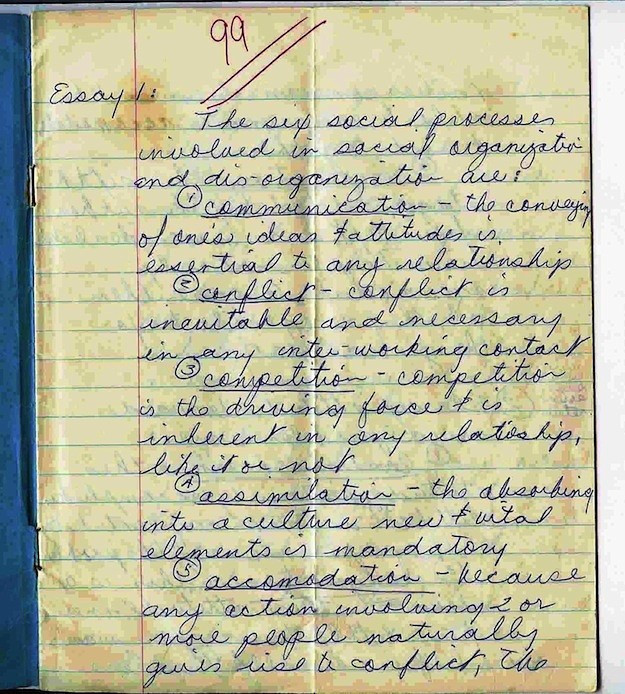 99
Essay 1:
The six social processes
involved in social organization
and dis-organization are:
① communication - the conveying
of one's ideas & attitudes is
essential to any relationship
② conflict - conflict is
inevitable and necessary
in any inter-working contact
③ competition - competition
is the driving force & is
inherent in any relatioship,
like it or not
④ assimilation - the absorbing
into a culture new & vital
elements is mandatory
⑤ accomodation - because
any action involving 2 or
more people naturally
gives rise to conflict, the